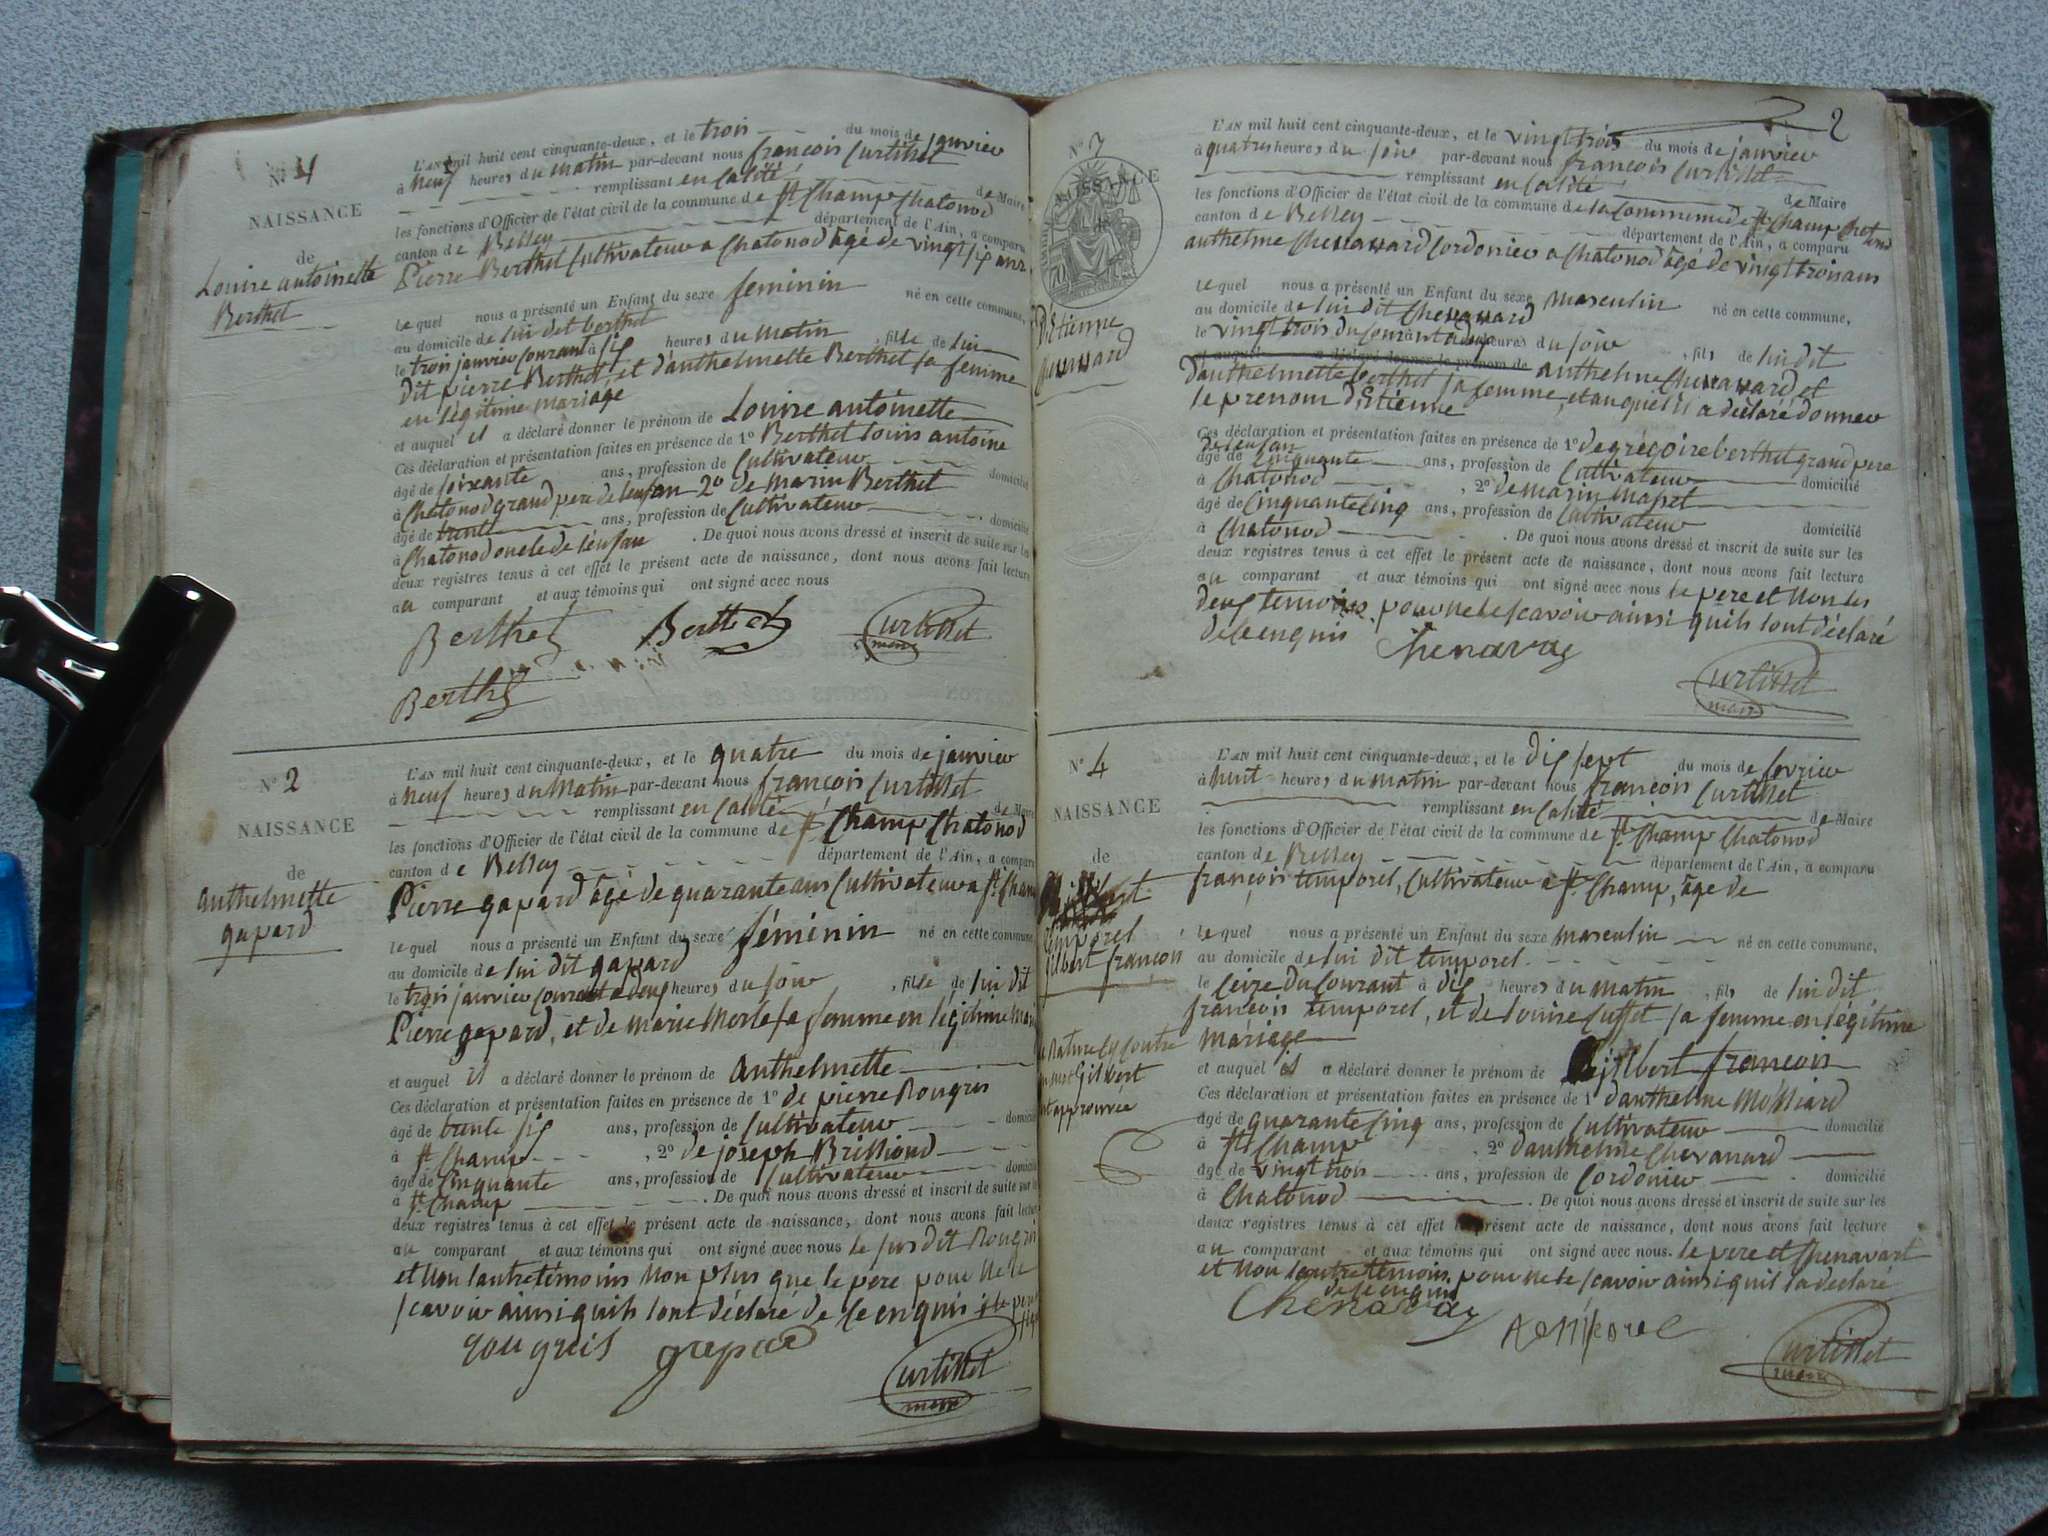 N° 1
NAISSANCE
de
Louise antoinette
Berthet
L'AN mil huit cent cinquante-deux, et le trois du mois de janvier
à neuf heures du matin par-devant nous françois Curtillet
remplissant en calité de Maire
les fonctions d'Officier de l'état civil de la commune de St Champ Chatonod
canton de Belley département de l'Ain, a comparu
Pierre Berthet Cultivateur a Chatonod âgé de vingt six ans
lequel nous a présenté un Enfant du sexe feminin né en cette commune,
au domicile de lui dit berthet
le trois janvier courant à six heures du matin, fille de lui
dit pierre Berthet, et d'anthelmette Berthet sa femme
en légitime mariage
et auquel il a déclaré donner le prénom de Louise antoinette
Ces déclaration et présentation faites en présence de 1° Berthet louis antoine
âgé de soixante ans, profession de Cultivateur domicilié
à Chatonod grand pere de lenfan 2° de marin Berthet
âgé de trente ans, profession de Cultivateur, domicilié
à Chatonod oncle de lenfan. De quoi nous avons dressé et inscrit de suite sur les
deux registres tenus à cet effet le présent acte de naissance, dont nous avons fait lecture
au comparant et aux témoins qui ont signé avec nous
Berthet Berthet Curtillet
maire
Berthet
N° 2
NAISSANCE
de
anthelmette
gapard
L'AN mil huit cent cinquante-deux, et le quatre du mois de janvier
à neuf heures du Matin par-devant nous françois Curtillet
remplissant en calité de Maire
les fonctions d'Officier de l'état civil de la commune de St Champ Chatonod
canton de Belley département de l'Ain, a comparu
Pierre gapard âgé de quarante ans Cultivateur a St Champ
lequel nous a présenté un Enfant du sexe féminin né en cette commune,
au domicile de lui dit gapard
le trois janvier courant a deux heures du soir, fille de lui dit
Pierre gapard, et de marie Merle sa femme en légitime
et auquel il a déclaré donner le prénom de anthelmette
Ces déclaration et présentation faites en présence de 1° de pierre Rougris
âgé de trente six ans, profession de Cultivateur domicilié
à St Champ, 2° de joseph Brilliond
âgé de Cinquante ans, profession de Cultivateur domicilié
à St Champ. De quoi nous avons dressé et inscrit de suite sur les
deux registres tenus à cet effet le présent acte de naissance, dont nous avons fait lecture
au comparant et aux témoins qui ont signé avec nous le sus dit Rougris
et non lautre témoins Non plus que le pere pour ne le
scavoir ainsi quils lont déclaré de ce enquis
gougris gapard
Curtillet
maire
2
N° 3
NAISSANCE
D'Etienne
Chenavard
L'AN mil huit cent cinquante-deux, et le vingt trois du mois de janvier
à quatre heures du soir par-devant nous françois Curtillet
remplissant en calité de Maire
les fonctions d'Officier de l'état civil de la commune de la Commune de St Champ Chatonod
canton de Belley département de l'Ain, a comparu
anthelme Chenavard Cordonier a Chatonod âgé de vingt trois ans
lequel nous a présenté un Enfant du sexe masculin né en cette commune,
au domicile de lui dit Chenavard
le vingt trois du courant à deux heures du soir, fils de lui dit
et auquel a déclaré donner le prénom de anthelme Chenavard, et
d'anthelmette berthet sa femme, et auquel il a déclaré donner
le prenom d'Etienne
Ces déclaration et présentation faites en présence de 1° de grégoire berthet grand pere
de lenfan
âgé de Cinquante ans, profession de Cultivateur domicilié
à Chatonod, 2° de marin Mapet
âgé de Cinquante Cinq ans, profession de Cultivateur domicilié
à Chatonod. De quoi nous avons dressé et inscrit de suite sur les
deux registres tenus à cet effet le présent acte de naissance, dont nous avons fait lecture
au comparant et aux témoins qui ont signé avec nous le pere et Non les
deux temoins, pour ne le scavoir ainsi quils lont déclaré
de ce enquis Chenavar
Curtillet
maire
N° 4
NAISSANCE
de
temporel
gilbert françois
L'AN mil huit cent cinquante-deux, et le dix sept du mois de fevrier
à huit heures du matin par-devant nous françois Curtillet
remplissant en calité de Maire
les fonctions d'Officier de l'état civil de la commune de St Champ Chatonod
canton de Belley département de l'Ain, a comparu
françois temporel, Cultivateur a St Champ, âgé de
lequel nous a présenté un Enfant du sexe masculin né en cette commune,
au domicile de lui dit temporel
le seize du Courant à dix heures du matin, fils de lui dit
françois temporel, et de louise Cusset sa femme en légitime
mariage
et auquel il a déclaré donner le prénom de gilbert françois
Ces déclaration et présentation faites en présence de 1° d'anthelme Molliard
âgé de quarante Cinq ans, profession de Cultivateur domicilié
à St Champ, 2° d'anthelme Chevanard
âgé de vingt trois ans, profession de Cordonier domicilié
à Chatonod. De quoi nous avons dressé et inscrit de suite sur les
deux registres tenus à cet effet le présent acte de naissance, dont nous avons fait lecture
au comparant et aux témoins qui ont signé avec nous. le pere et Chenavart
et non lautre temoin, pour ne le scavoir ainsi quil la declaré
de ce enquis
Chenavar temporel
Curtillet
maire
mot gilbert
approuvée